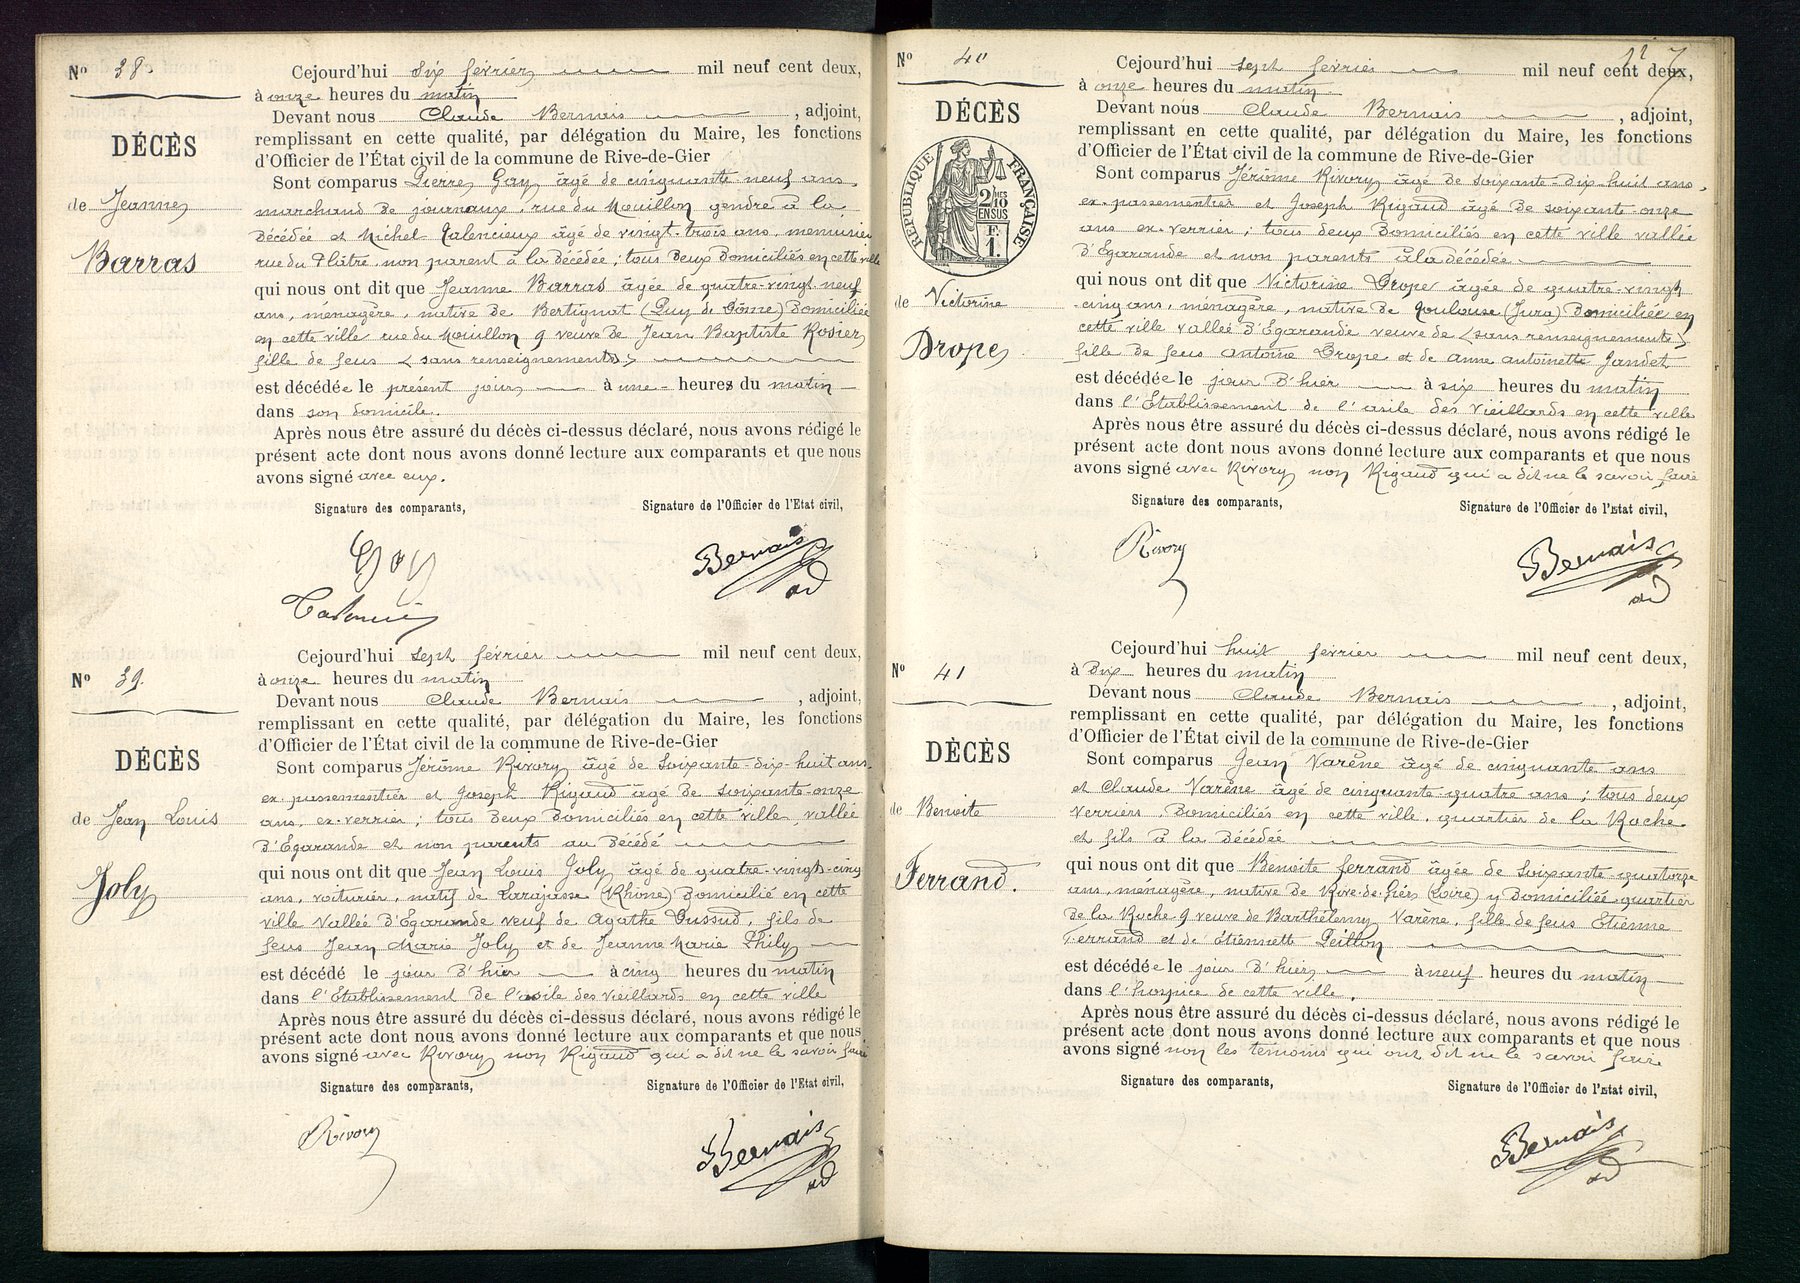 Nº 38.
DÉCÈS
de Jeanne
Barras
Cejourd'hui six février mil neuf cent deux,
à onze heures du matin
Devant nous Claude Bernais, adjoint,
remplissant en cette qualité, par délégation du Maire, les fonctions
d'Officier de l'État civil de la commune de Rive-de-Gier
Sont comparus Pierre Gay âgé de cinquante-neuf ans,
marchand de journaux, rue du Mouillon gendre à la
décédée et Michel Valencieux âgé de vingt-trois ans, menuisier
rue du Plâtre, non parent à la décédée; tous deux domiciliés en cette ville
qui nous ont dit que Jeanne Barras âgée de quatre-vingt-neuf
ans, ménagère, native de Bertignat (Puy de Dôme) domiciliée
en cette ville rue du Mouillon 9 veuve de Jean Baptiste Rosier,
fille de feus (sans renseignements)
est décédée le présent jour à une heures du matin
dans son domicile.
Après nous être assuré du décès ci-dessus déclaré, nous avons rédigé le
présent acte dont nous avons donné lecture aux comparants et que nous
avons signé avec eux.
Signature des comparants, Signature de l'Officier de l'Etat civil,
Gay Bernais
ad
Nº 39.
DÉCÈS
de Jean Louis
Joly
Cejourd'hui sept février mil neuf cent deux,
à onze heures du matin
Devant nous Claude Bernais, adjoint,
remplissant en cette qualité, par délégation du Maire, les fonctions
d'Officier de l'État civil de la commune de Rive-de-Gier
Sont comparus Jérôme Rivory âgé de soixante-dix-huit ans,
ex-passementier et Joseph Rigaud âgé de soixante-onze
ans, ex-verrier; tous deux domiciliés en cette ville, vallée
d'Egarande et non parents au décédé
qui nous ont dit que Jean Louis Joly âgé de quatre-vingt-cinq
ans, voiturier, natif de Larajasse (Rhône) domicilié en cette
ville vallée d'Egarande veuf de Agathe Dussud, fils de
feus Jean Marie Joly et de Jeanne Marie Philys
est décédé le jour d'hier à cinq heures du matin
dans l'Etablissement de l'asile des vieillards en cette ville
Après nous être assuré du décès ci-dessus déclaré, nous avons rédigé le
présent acte dont nous avons donné lecture aux comparants et que nous
avons signé avec Rivory non Rigaud qui a dit ne le savoir faire
Signature des comparants, Signature de l'Officier de l'Etat civil,
Rivory Bernais
ad
Nº 40
DÉCÈS
RÉPUBLIQUE FRANÇAISE
2/10
EN SUS
F.
1.
de Victorine
Drope
Cejourd'hui sept février mil neuf cent deux,
à onze heures du matin
Devant nous Claude Bernais, adjoint,
remplissant en cette qualité, par délégation du Maire, les fonctions
d'Officier de l'État civil de la commune de Rive-de-Gier
Sont comparus Jérôme Rivory âgé de soixante-dix-huit ans,
ex-passementier et Joseph Rigaud âgé de soixante-onze
ans ex-verrier; tous deux domiciliés en cette ville vallée
d'Egarande et non parents à la décédée
qui nous ont dit que Victorine Drope âgée de quatre-vingt
-cinq ans, ménagère, native de Toulouse (Jura) domiciliée en
cette ville vallée d'Egarande veuve de (sans renseignements)
fille de feus Antoine Drope et de Anne Antoinette Jandet
est décédée le jour d'hier à six heures du matin
dans l'Etablissement de l'asile des vieillards en cette ville
Après nous être assuré du décès ci-dessus déclaré, nous avons rédigé le
présent acte dont nous avons donné lecture aux comparants et que nous
avons signé avec Rivory non Rigaud qui a dit ne le savoir faire
Signature des comparants, Signature de l'Officier de l'Etat civil,
Rivory Bernais
ad
Nº 41
DÉCÈS
de Benoite
Ferrand.
Cejourd'hui huit février mil neuf cent deux,
à dix heures du matin
Devant nous Claude Bernais, adjoint,
remplissant en cette qualité, par délégation du Maire, les fonctions
d'Officier de l'État civil de la commune de Rive-de-Gier
Sont comparus Jean Varêne âgé de cinquante ans
et Claude Varêne âgé de cinquante-quatre ans; tous deux
verriers, domiciliés en cette ville, quartier de la Roche
et fils à la décédée
qui nous ont dit que Benoite Ferrand âgée de soixante-quatorze
ans, ménagère, native de Rive-de-Gier (Loire) y domiciliée quartier
de la Roche 9 veuve de Barthélemy Varêne, fille de feus Etienne
Ferrand et de Etiennette Peillon
est décédée le jour d'hier à neuf heures du matin
dans l'hospice de cette ville.
Après nous être assuré du décès ci-dessus déclaré, nous avons rédigé le
présent acte dont nous avons donné lecture aux comparants et que nous
avons signé non les témoins qui ont dit ne le savoir faire
Signature des comparants, Signature de l'Officier de l'Etat civil,
Bernais
ad